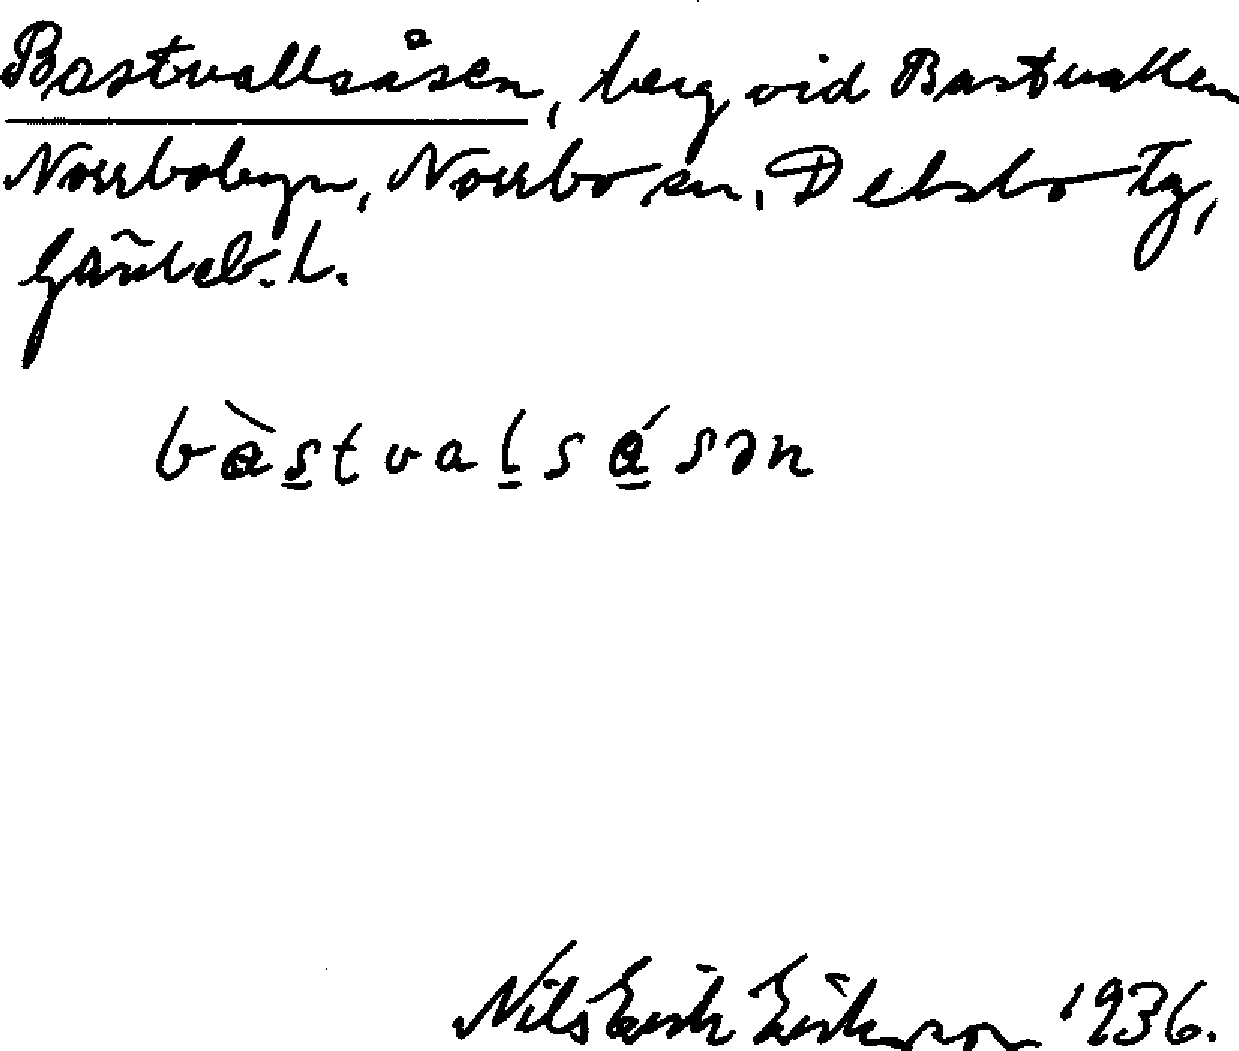 Bastvallsåsen, berg vid Bastvallen
Norrbobyn, Norrbo sn, Delsbo tg,
Gävleb. l.
bàs̠tval̠sá̠sən
Nils Erik Erikson 1936.